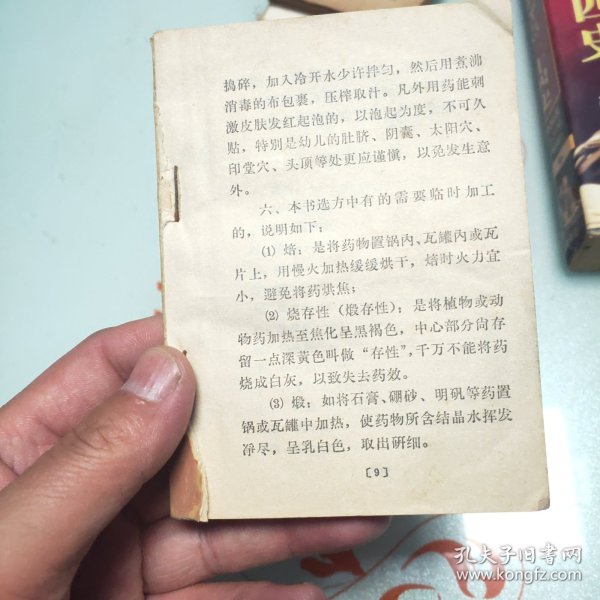 捣碎，加入冷开水少许拌匀，然后用煮沸
消毒的布包裹，压榨取汁。凡外用药能刺
激皮肤发红起泡的，以泡起为度，不可久
贴，特别是幼儿的肚脐、阴囊、太阳穴、
印堂穴、头顶等处更应谨慎，以免发生意
外。
六、本书选方中有的需要临时加工
的，说明如下：
⑴ 焙：是将药物置锅内、瓦罐内或瓦
片上，用慢火加热缓缓烘干，焙时火力宜
小，避免将药烘焦；
⑵ 烧存性（煅存性）：是将植物或动
物药加热至焦化呈黑褐色，中心部分尚存
留一点深黄色叫做“存性”，千万不能将药
烧成白灰，以致失去药效。
⑶ 煅：如将石膏、硼砂、明矾等药置
锅或瓦罐中加热，使药物所含结晶水挥发
净尽，呈乳白色，取出研细。
〔9〕
史
孔夫子旧书网
www.kongfz.com